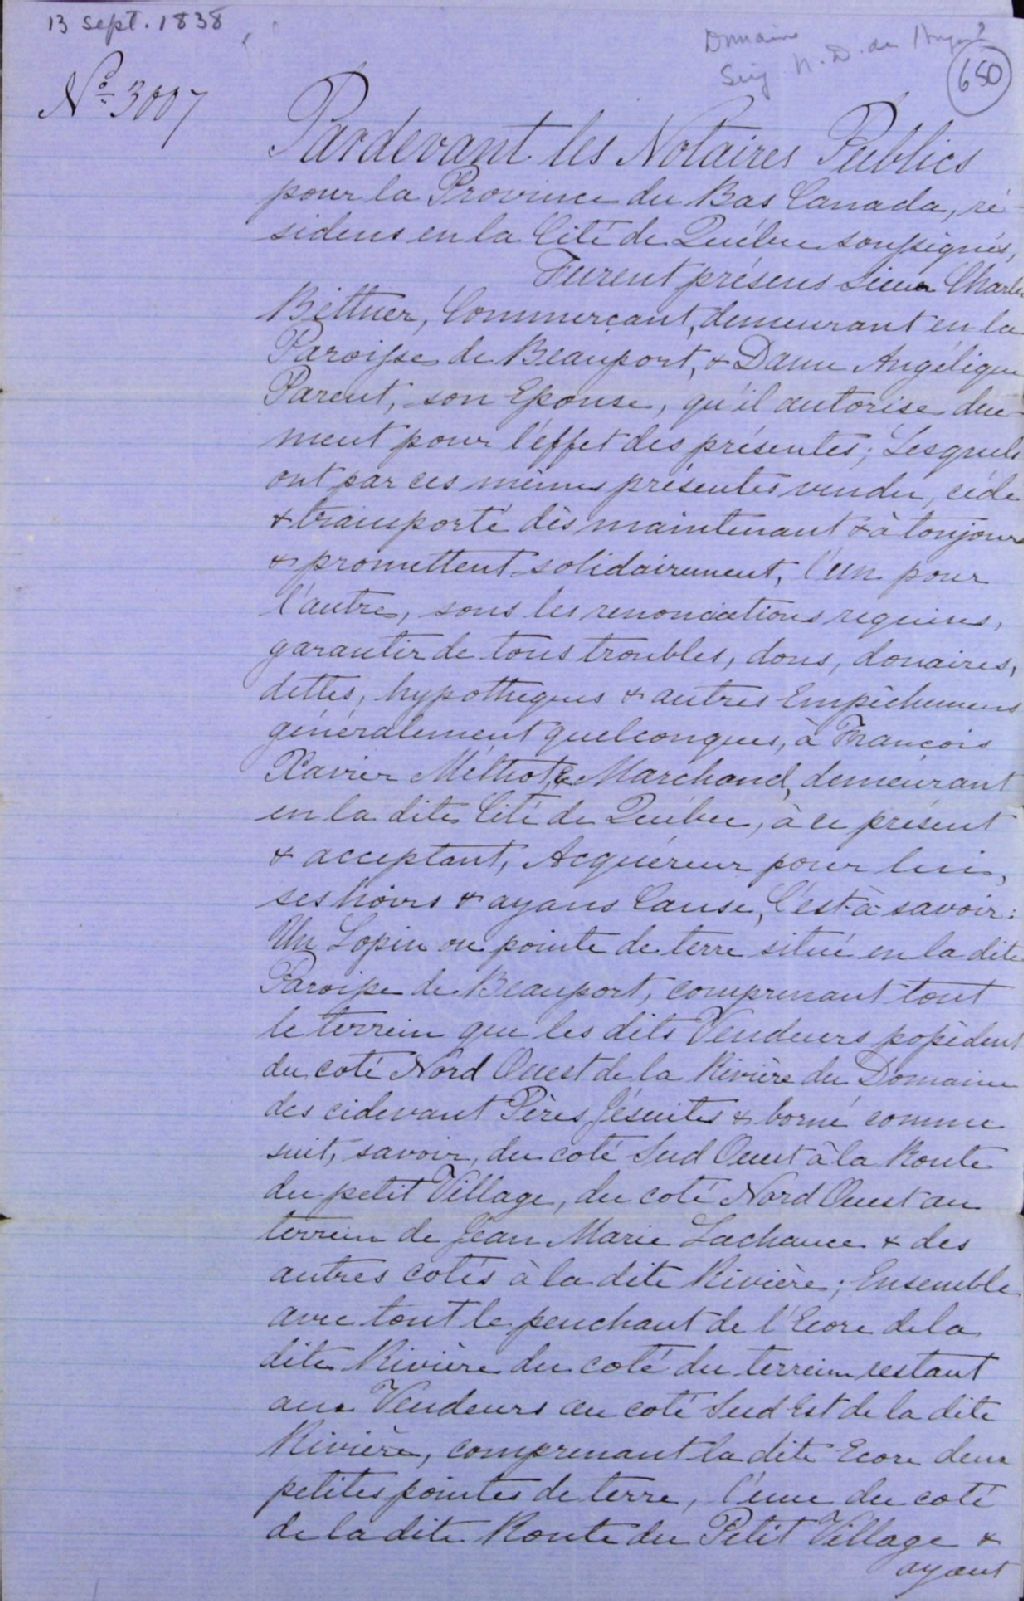 13 sept. 1838
Domaine
Seig N. D. des Anges
650
No. 3007
Pardevant les Notaires Publics
pour la Province du Bas Canada, ré-
sidens en la Cité de Québec soussignés,
Furent présens Sieur Charles
Bettner, Commerçant, demeurant en la
Paroisse de Beauport, & Dame Angélique
Parent, son Epouse, qu'il autorise due-
ment pour l'éffet des présentes; Lesquels
ont par ces mêmes présentes vendu, cédé
& transporté dès maintenant & à toujours
& promettent solidairement, l'un pour
l'autre, sous les renonciations requises,
garantir de tous troubles, dons, douaires,
dettes, hypothèques & autres Empêchemens
généralement quelconques, à François
Xavier Méthot, Marchand, demeurant
en la dite Cité de Québec, à ce présent
& acceptant, Acquéreur pour lui,
ses hoirs & ayans Cause, C'est-à-savoir:
Un Lopin ou pointe de terre situé en la dite
Paroisse de Beauport, comprenant tout
le terrein que les dits Vendeurs possèdent
du coté Nord Ouest de la Rivière du Domaine
des cidevant Pères Jésuites & borné comme
suit, savoir, du coté Sud Ouest à la Route
du petit Village, du coté Nord Ouest au
terrein de Jean Marie Lachance & des
autres cotés à la dite Rivière; Ensemble
avec tout le penchant de l'Ecore de la
dite Rivière du coté du terrein restant
aux Vendeurs au coté Sud Est de la dite
Rivière, comprenant la dite Ecore deux
petites pointes de terre, l'une du coté
de la dite Route du Petit Village &
ayant